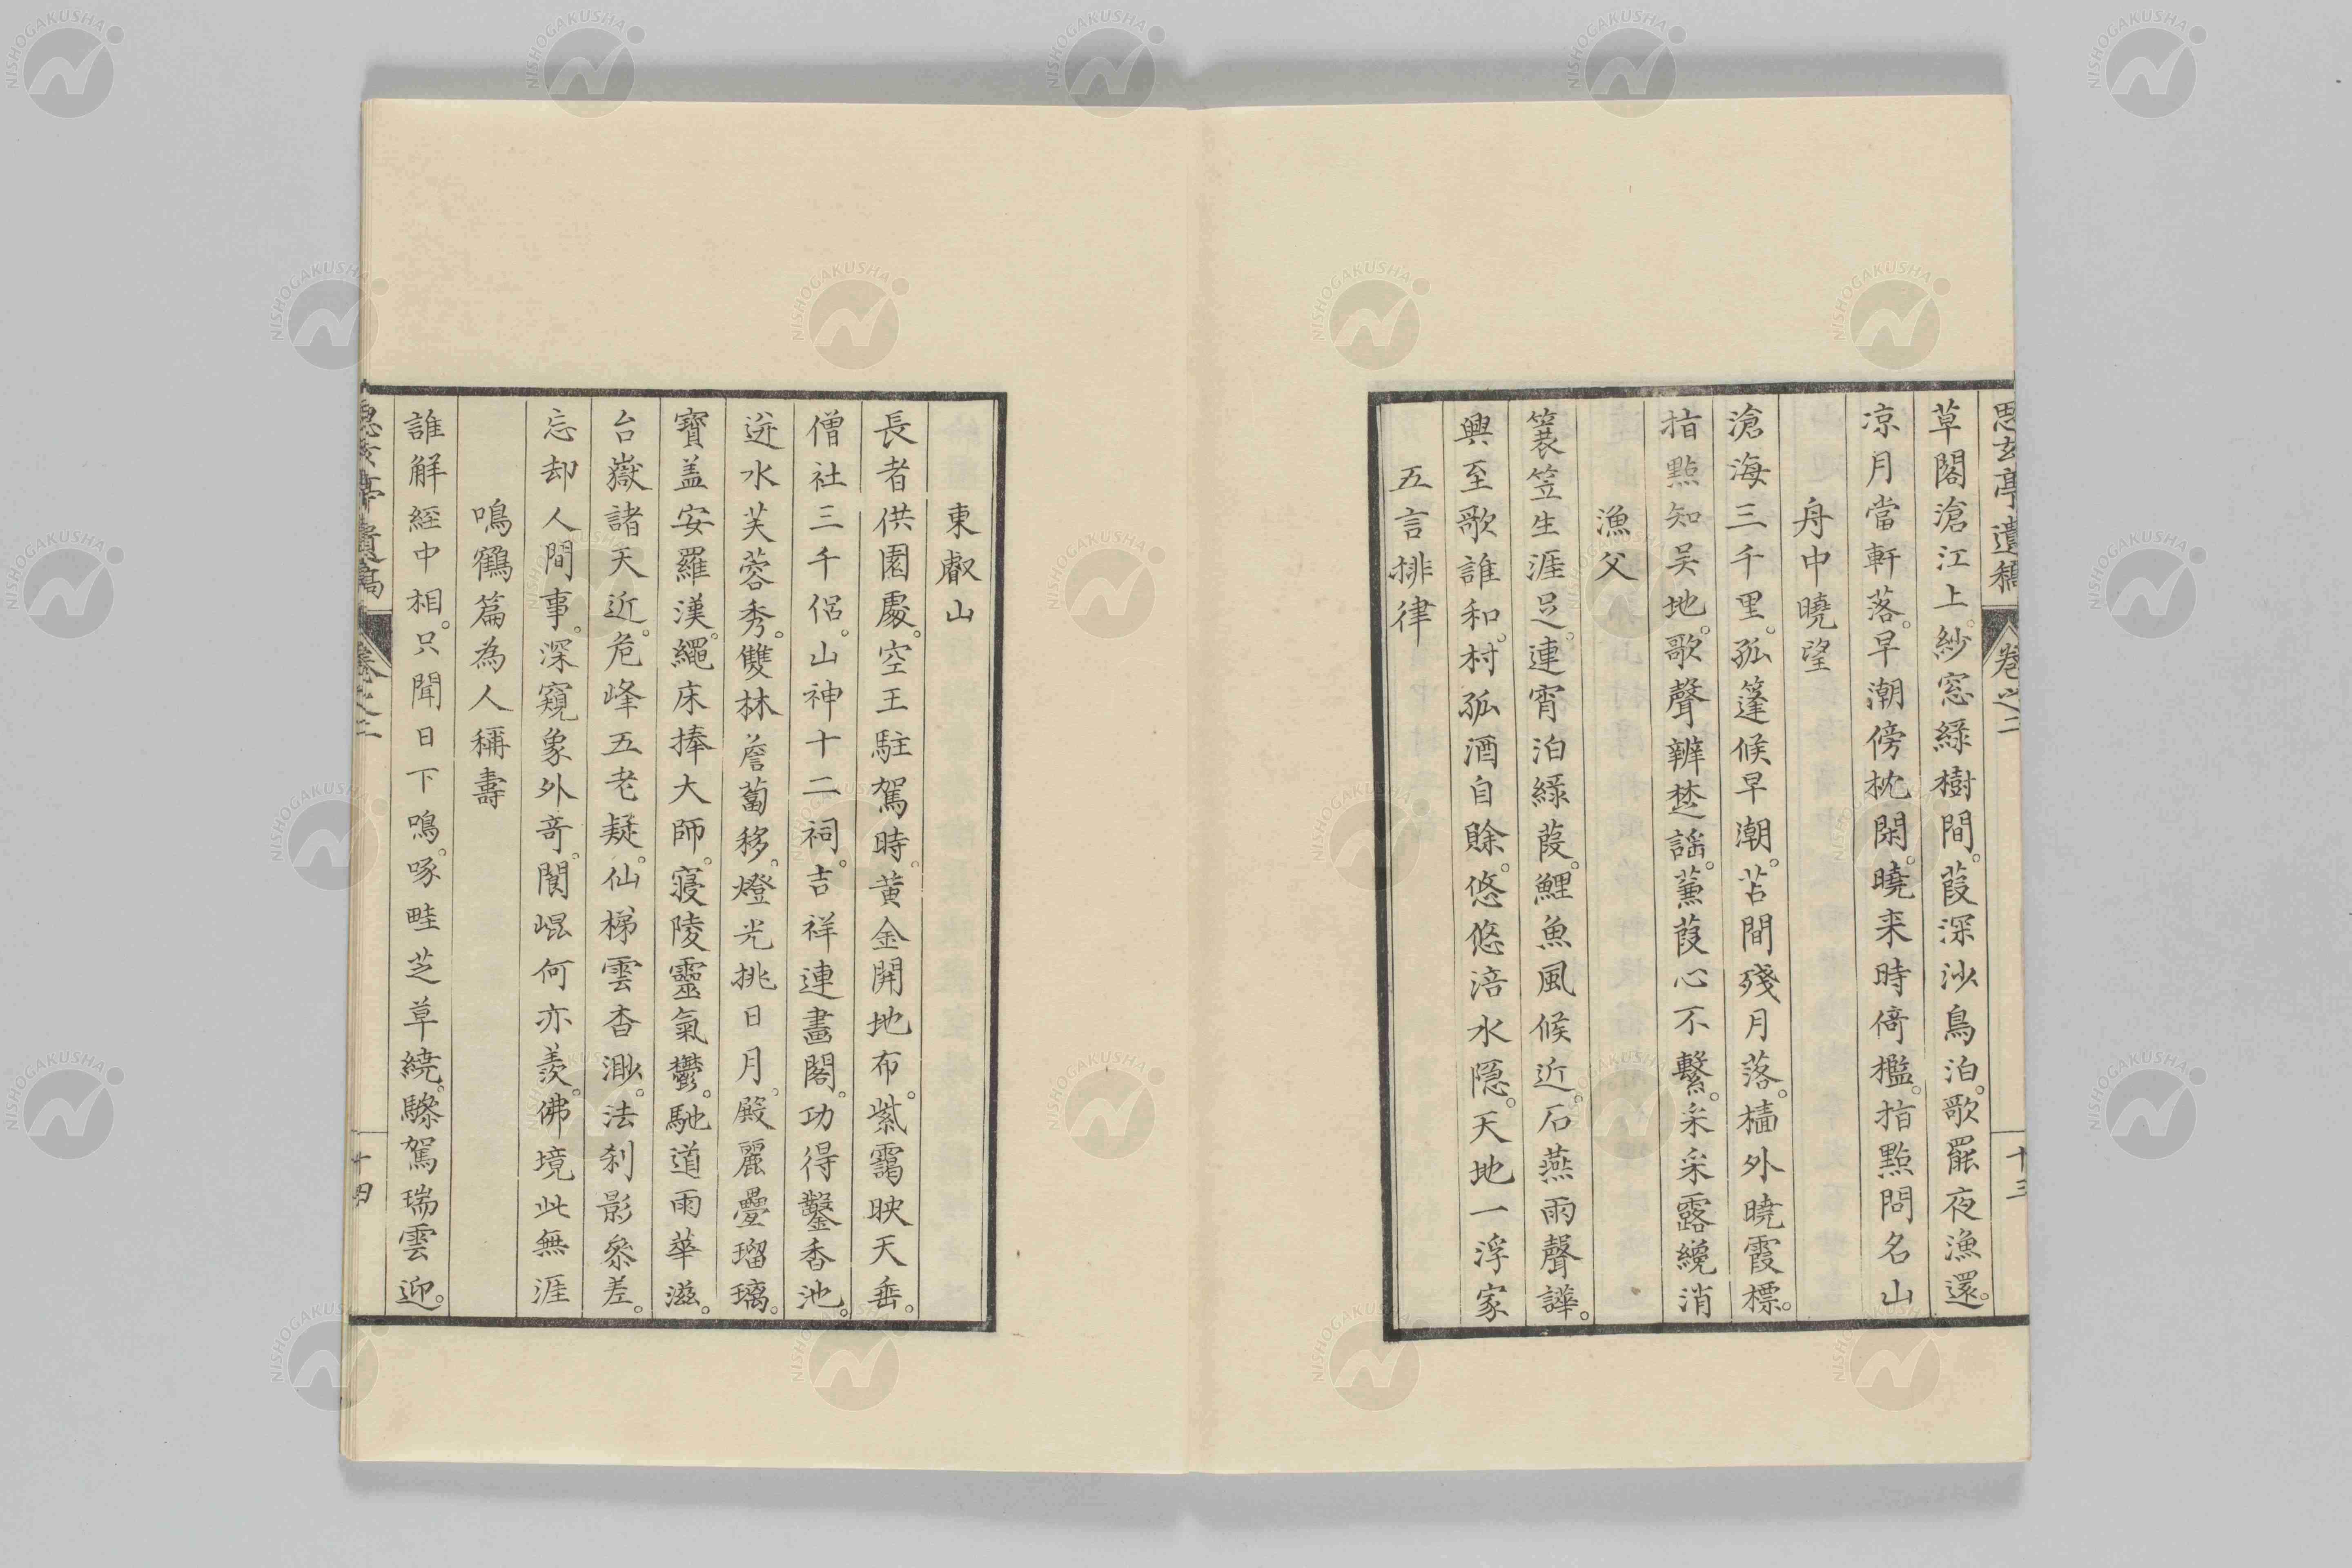 思玄亭遺稿 卷之二 十三
草閣滄江上。紗窓綠樹間。葭深沙鳥泊。歌罷夜漁還。
凉月當軒落。早潮傍枕閑。曉来時倚檻。指點問名山
舟中曉望
滄海三千里。孤篷候早潮。苫間殘月落。檣外曉霞標。
指點知吴地。歌聲辨楚謡。蒹葭心不繫。采采露纔消
漁父
簑笠生涯足。連宵泊綠葭。鯉魚風候近。石燕雨聲譁。
興至歌誰和。村孤酒自賖。悠悠涪水隠。天地一浮家
五言排律
東叡山
長者供園處。空王駐駕時。黄金開地布。紫靄映天垂。
僧社三千侶。山神十二祠。吉祥連畵閣。功得鑿香池。
逬水芙蓉秀。雙林薝蔔移。燈光挑日月。殿麗疊瑠璃。
寶盖安羅漢。繩床捧大師。寝陵靈氣鬱。馳道雨華滋。
台嶽諸天近。危峰五老疑。仙梯雲杳渺。法刹影叅差。
忘却人間事。深窺象外竒。閬崐何亦羨。佛境此無涯
鳴鶴篇為人稱壽
誰解經中相。只聞日下鳴。啄畦芝草繞。驂駕瑞雲迎。
卷之二 十四
NISHOGAKUSHA